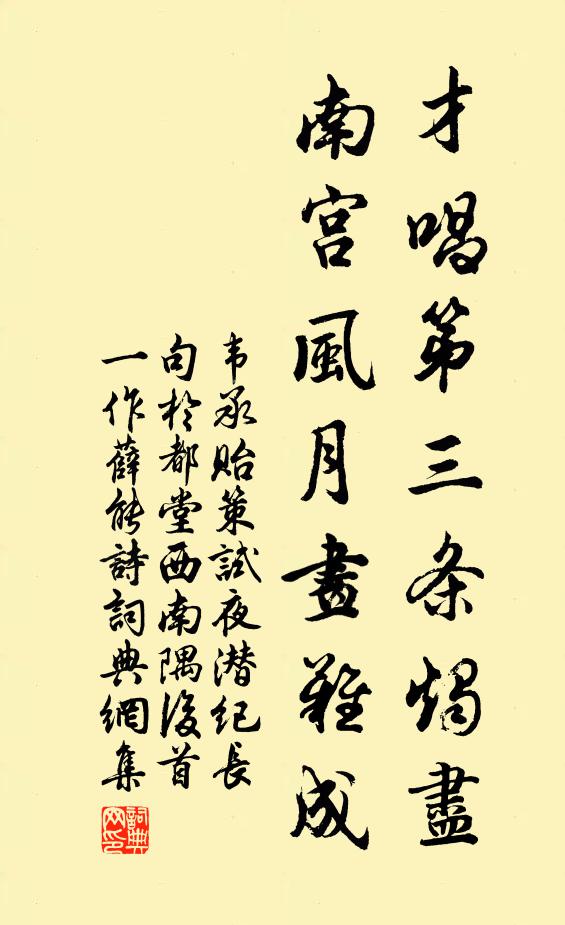 才唱第三条燭盡
南宫風月畫難成
韦承贻策試夜潜紀長
句於都堂西南隅後首
一作薛能詩詞典網集
詞典
网印